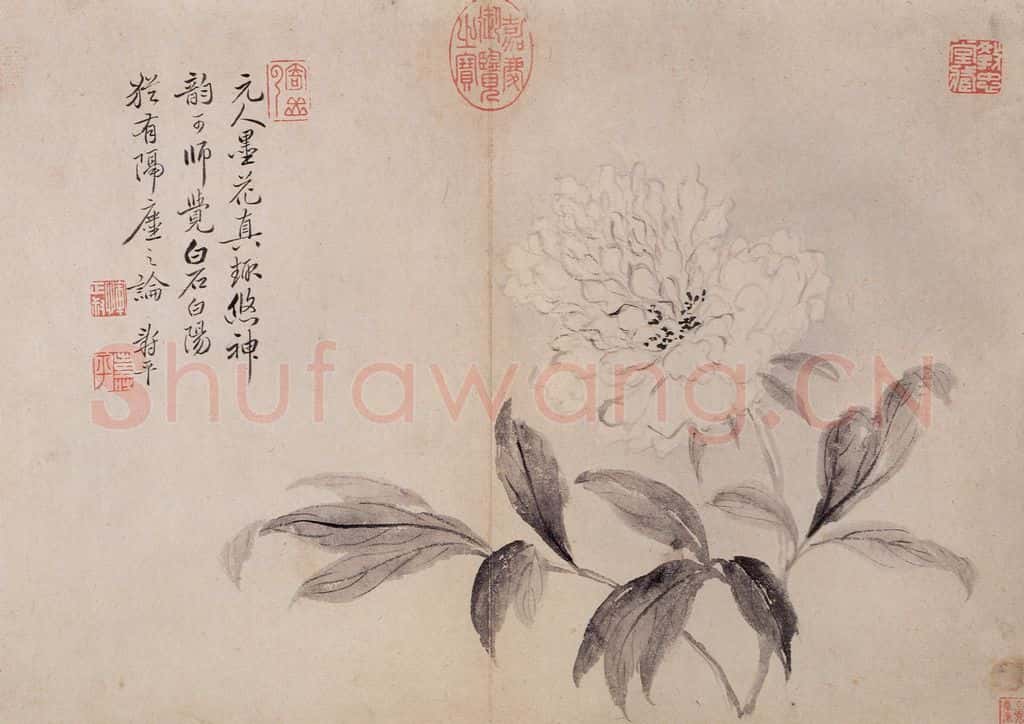 嘉慶御覽之寶
元人墨花真趣悠神
韵可師覺白石白陽
猶有隔塵之論
壽平
Shufawang.CN